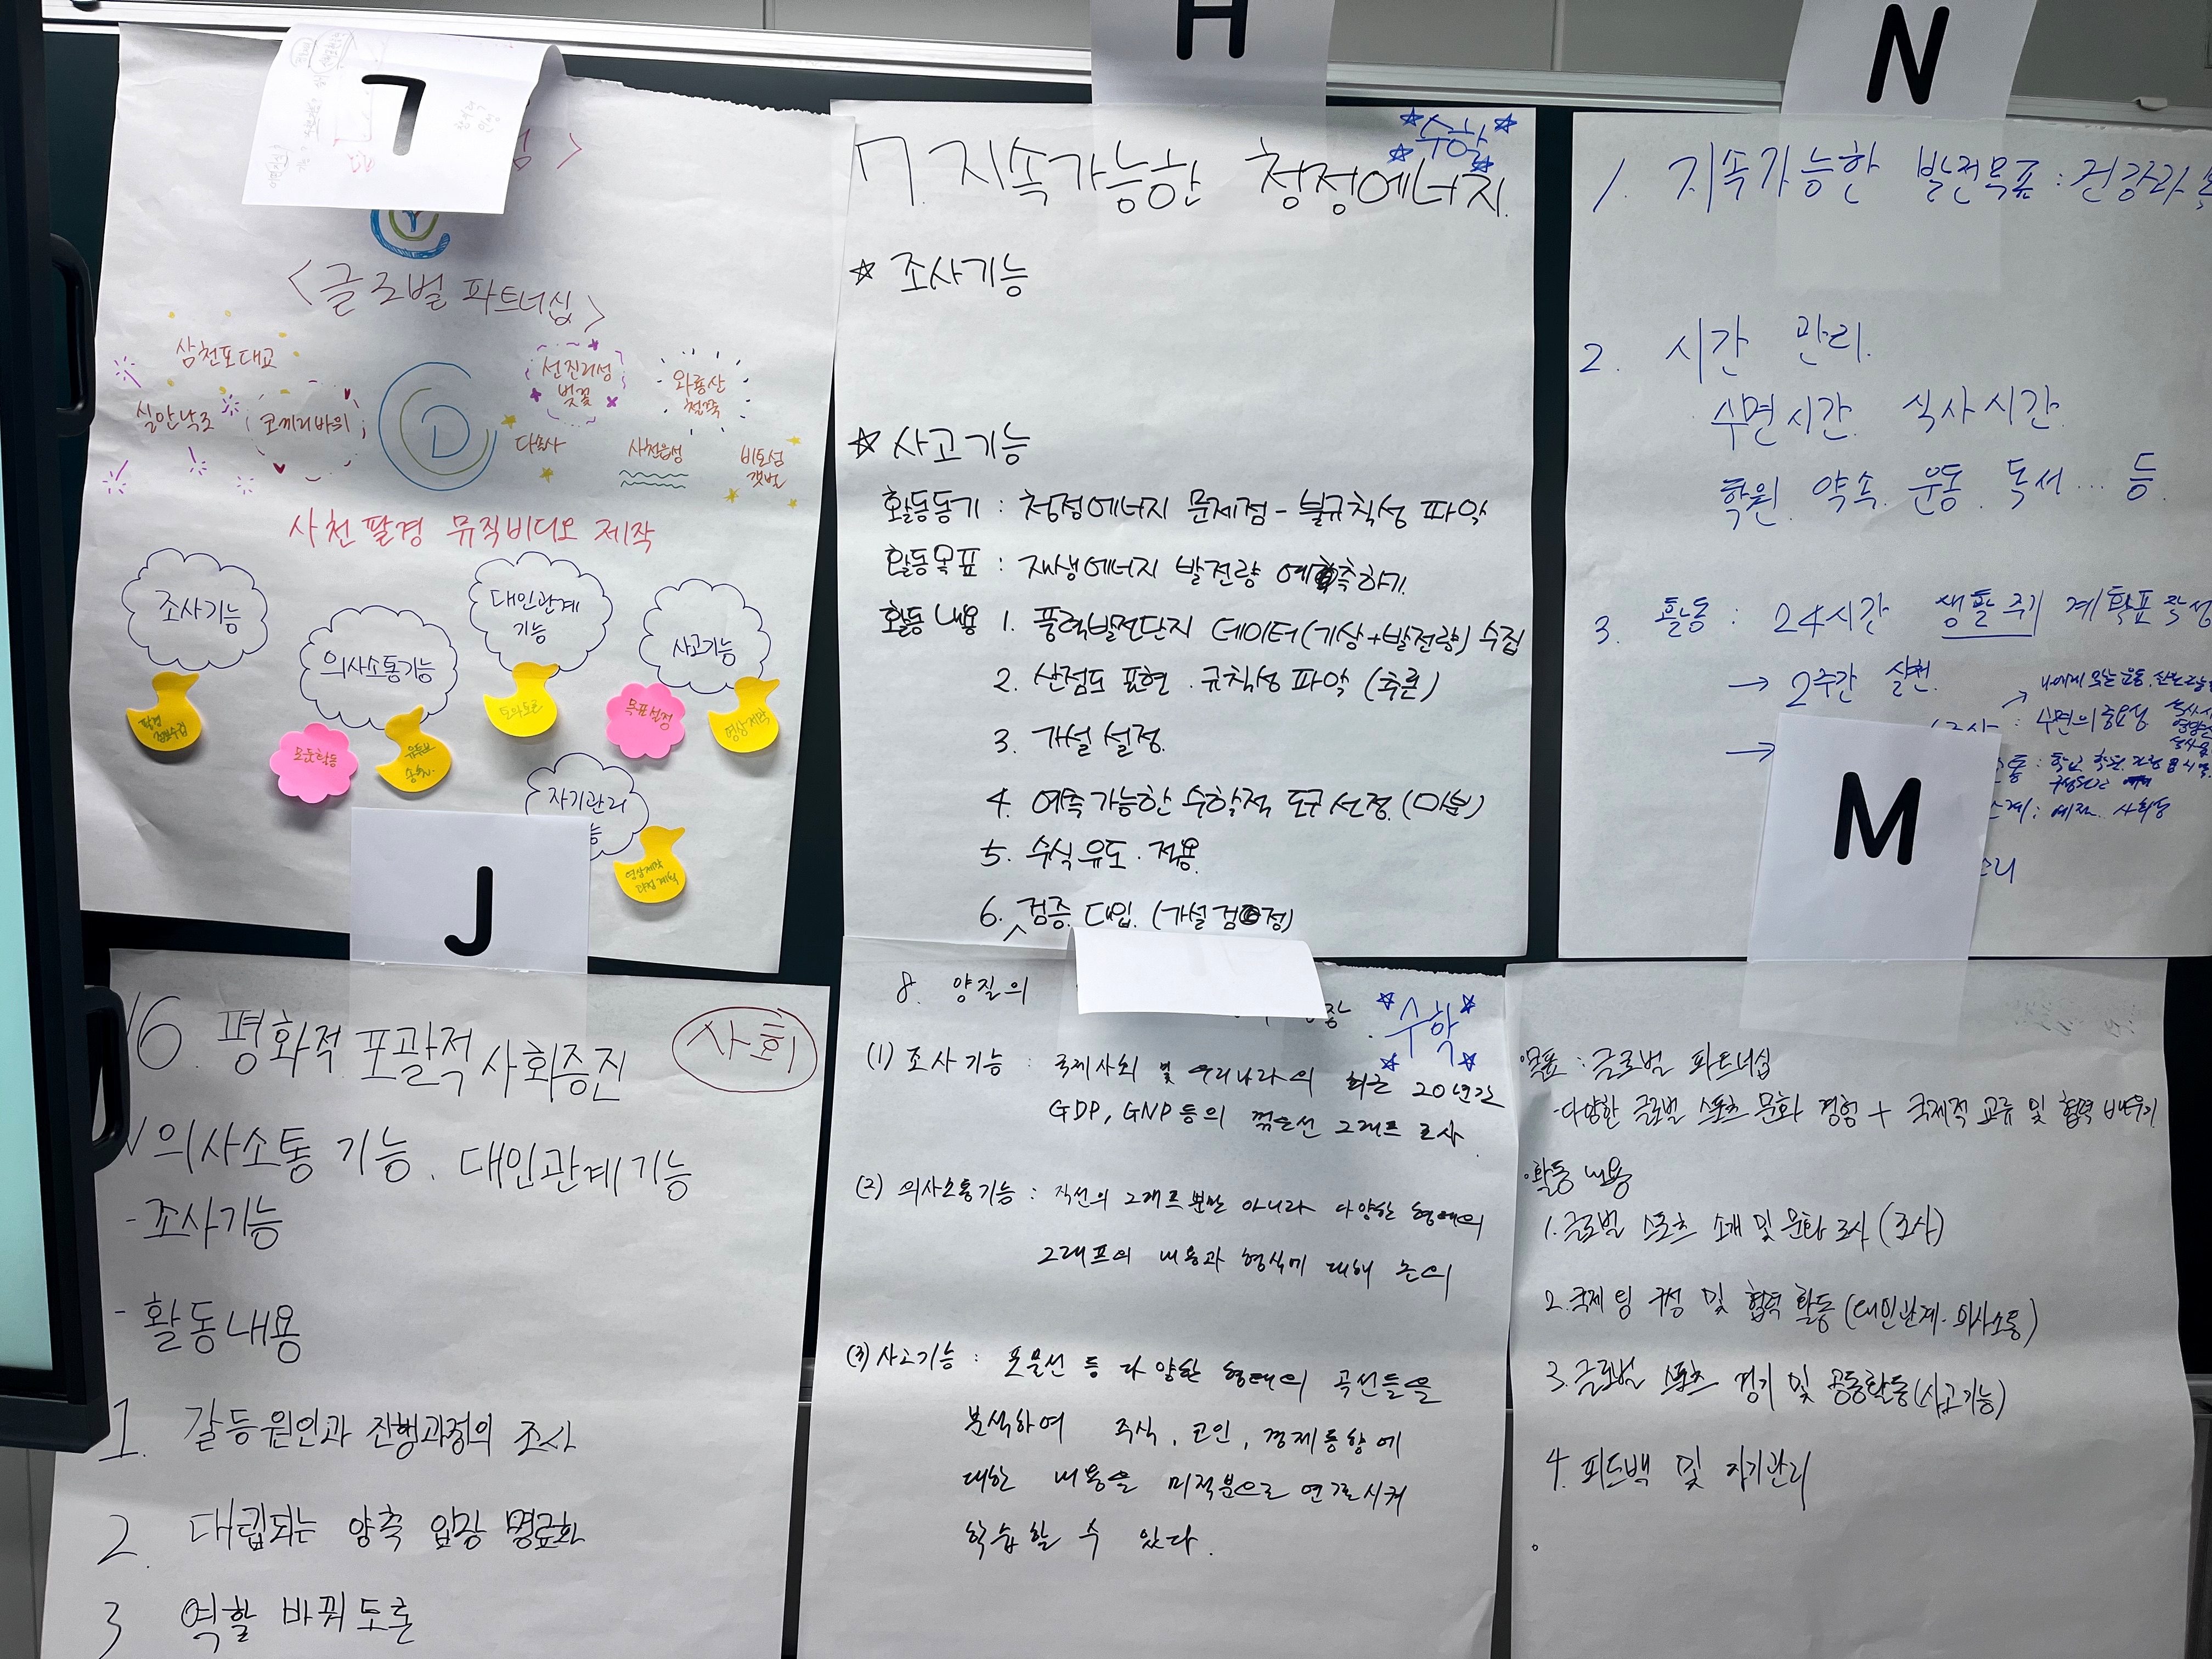 ㄱ
<글로벌 파트너십>
삼천포대교
실안낙조
코끼리바위
선진리성
벚꽃
와룡산
철쭉
다솔사
사천읍성
비토섬
갯벌
사천 팔경 뮤직비디오 제작
조사기능
의사소통기능
대인관계
기능
사고기능
팔경
정보수집
모둠활동
유튜브
토의토론
목표설정
영상제작
자기관리
영상제작
과정 계획
H
☆수학☆
7. 지속가능한 청정에너지.
☆ 조사기능
☆ 사고기능
활동동기 : 청정에너지 문제점 - 불규칙성 파악
활동목표 : 재생에너지 발전량 예측하기.
활동내용 1. 풍력발전단지 데이터(기상+발전량) 수집
2. 산점도 표현. 규칙성 파악 (추론)
3. 가설 설정.
4. 예측 가능한 수학적 도구 선정. (미분)
5. 수식 유도. 적용.
6. 검증. 대입. (가설 검정)
N
1. 지속가능한 발전목표 : 건강과
2. 시간 관리.
수면시간. 식사시간.
학원. 약속. 운동. 독서... 등.
3. 활동 : 24시간 생활주기 계획표 작성
→ 2주간 실천.
→
: 수면의 중요성
J
16. 평화적 포괄적 사회증진
사회
√ 의사소통 기능. 대인관계 기능
- 조사기능
- 활동내용
1. 갈등원인과 진행과정의 조사
2. 대립되는 양측 입장 명료화
3 역할 바꿔 토론
8. 양질의
☆수학☆
(1) 조사기능 : 국제사회 및 우리나라의 최근 20년간
GDP, GNP 등의 꺾은선 그래프 조사.
(2) 의사소통기능 : 직선의 그래프뿐만 아니라 다양한 형태의
그래프의 내용과 형식에 대해 논의
(3) 사고기능 : 포물선 등 다양한 형태의 곡선들을
분석하여 주식, 코인, 경제동향에
대한 내용을 미적분으로 연결시켜
학습할 수 있다.
M
·목표 : 글로벌 파트너십
-다양한 글로벌 스포츠 문화 경험 + 국제적 교류 및 협력 배우기
·활동 내용
1. 글로벌 스포츠 소개 및 문화 조사 (조사)
2. 국제 팀 구성 및 협력 활동 (대인관계·의사소통)
3. 글로벌 스포츠 경기 및 공동활동(사고기능)
4. 피드백 및 자기관리